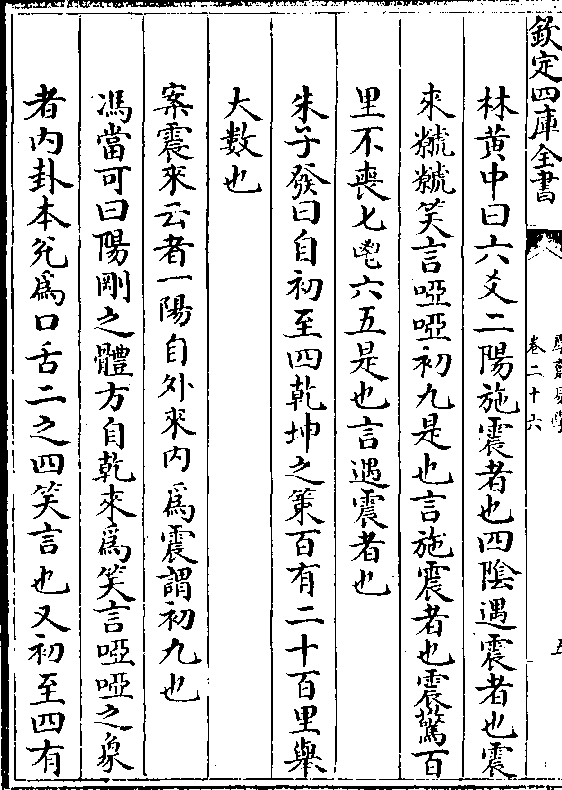 欽定四庫全書
卷二十六
林黄中曰六爻二陽施震者也四隂遇震者也震
來虩虩笑言啞啞初九是也言施震者也震驚百
里不喪匕鬯六五是也言遇震者也
朱子發曰自初至四乾坤之策百有二十百里舉
大數也
案震來云者一陽自外來内爲震謂初九也
馮當可曰陽剛之體方自乾來爲笑言啞啞之象
者内卦本兌爲口舌二之四笑言也又初至四有